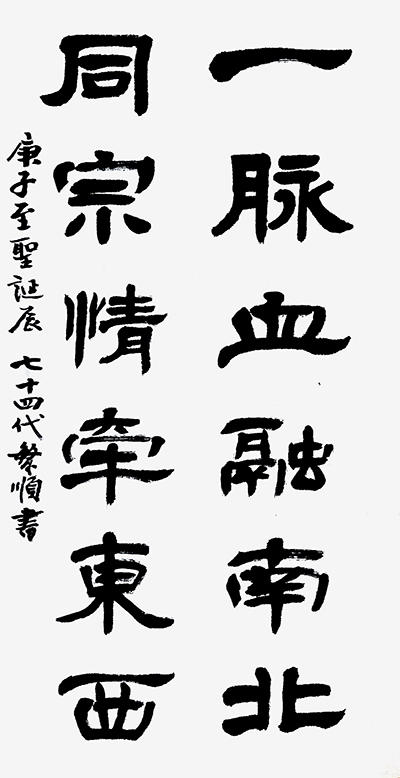 一脉血融南北
同宗情牽東西
庚子至聖誕辰 七十四代繁順書